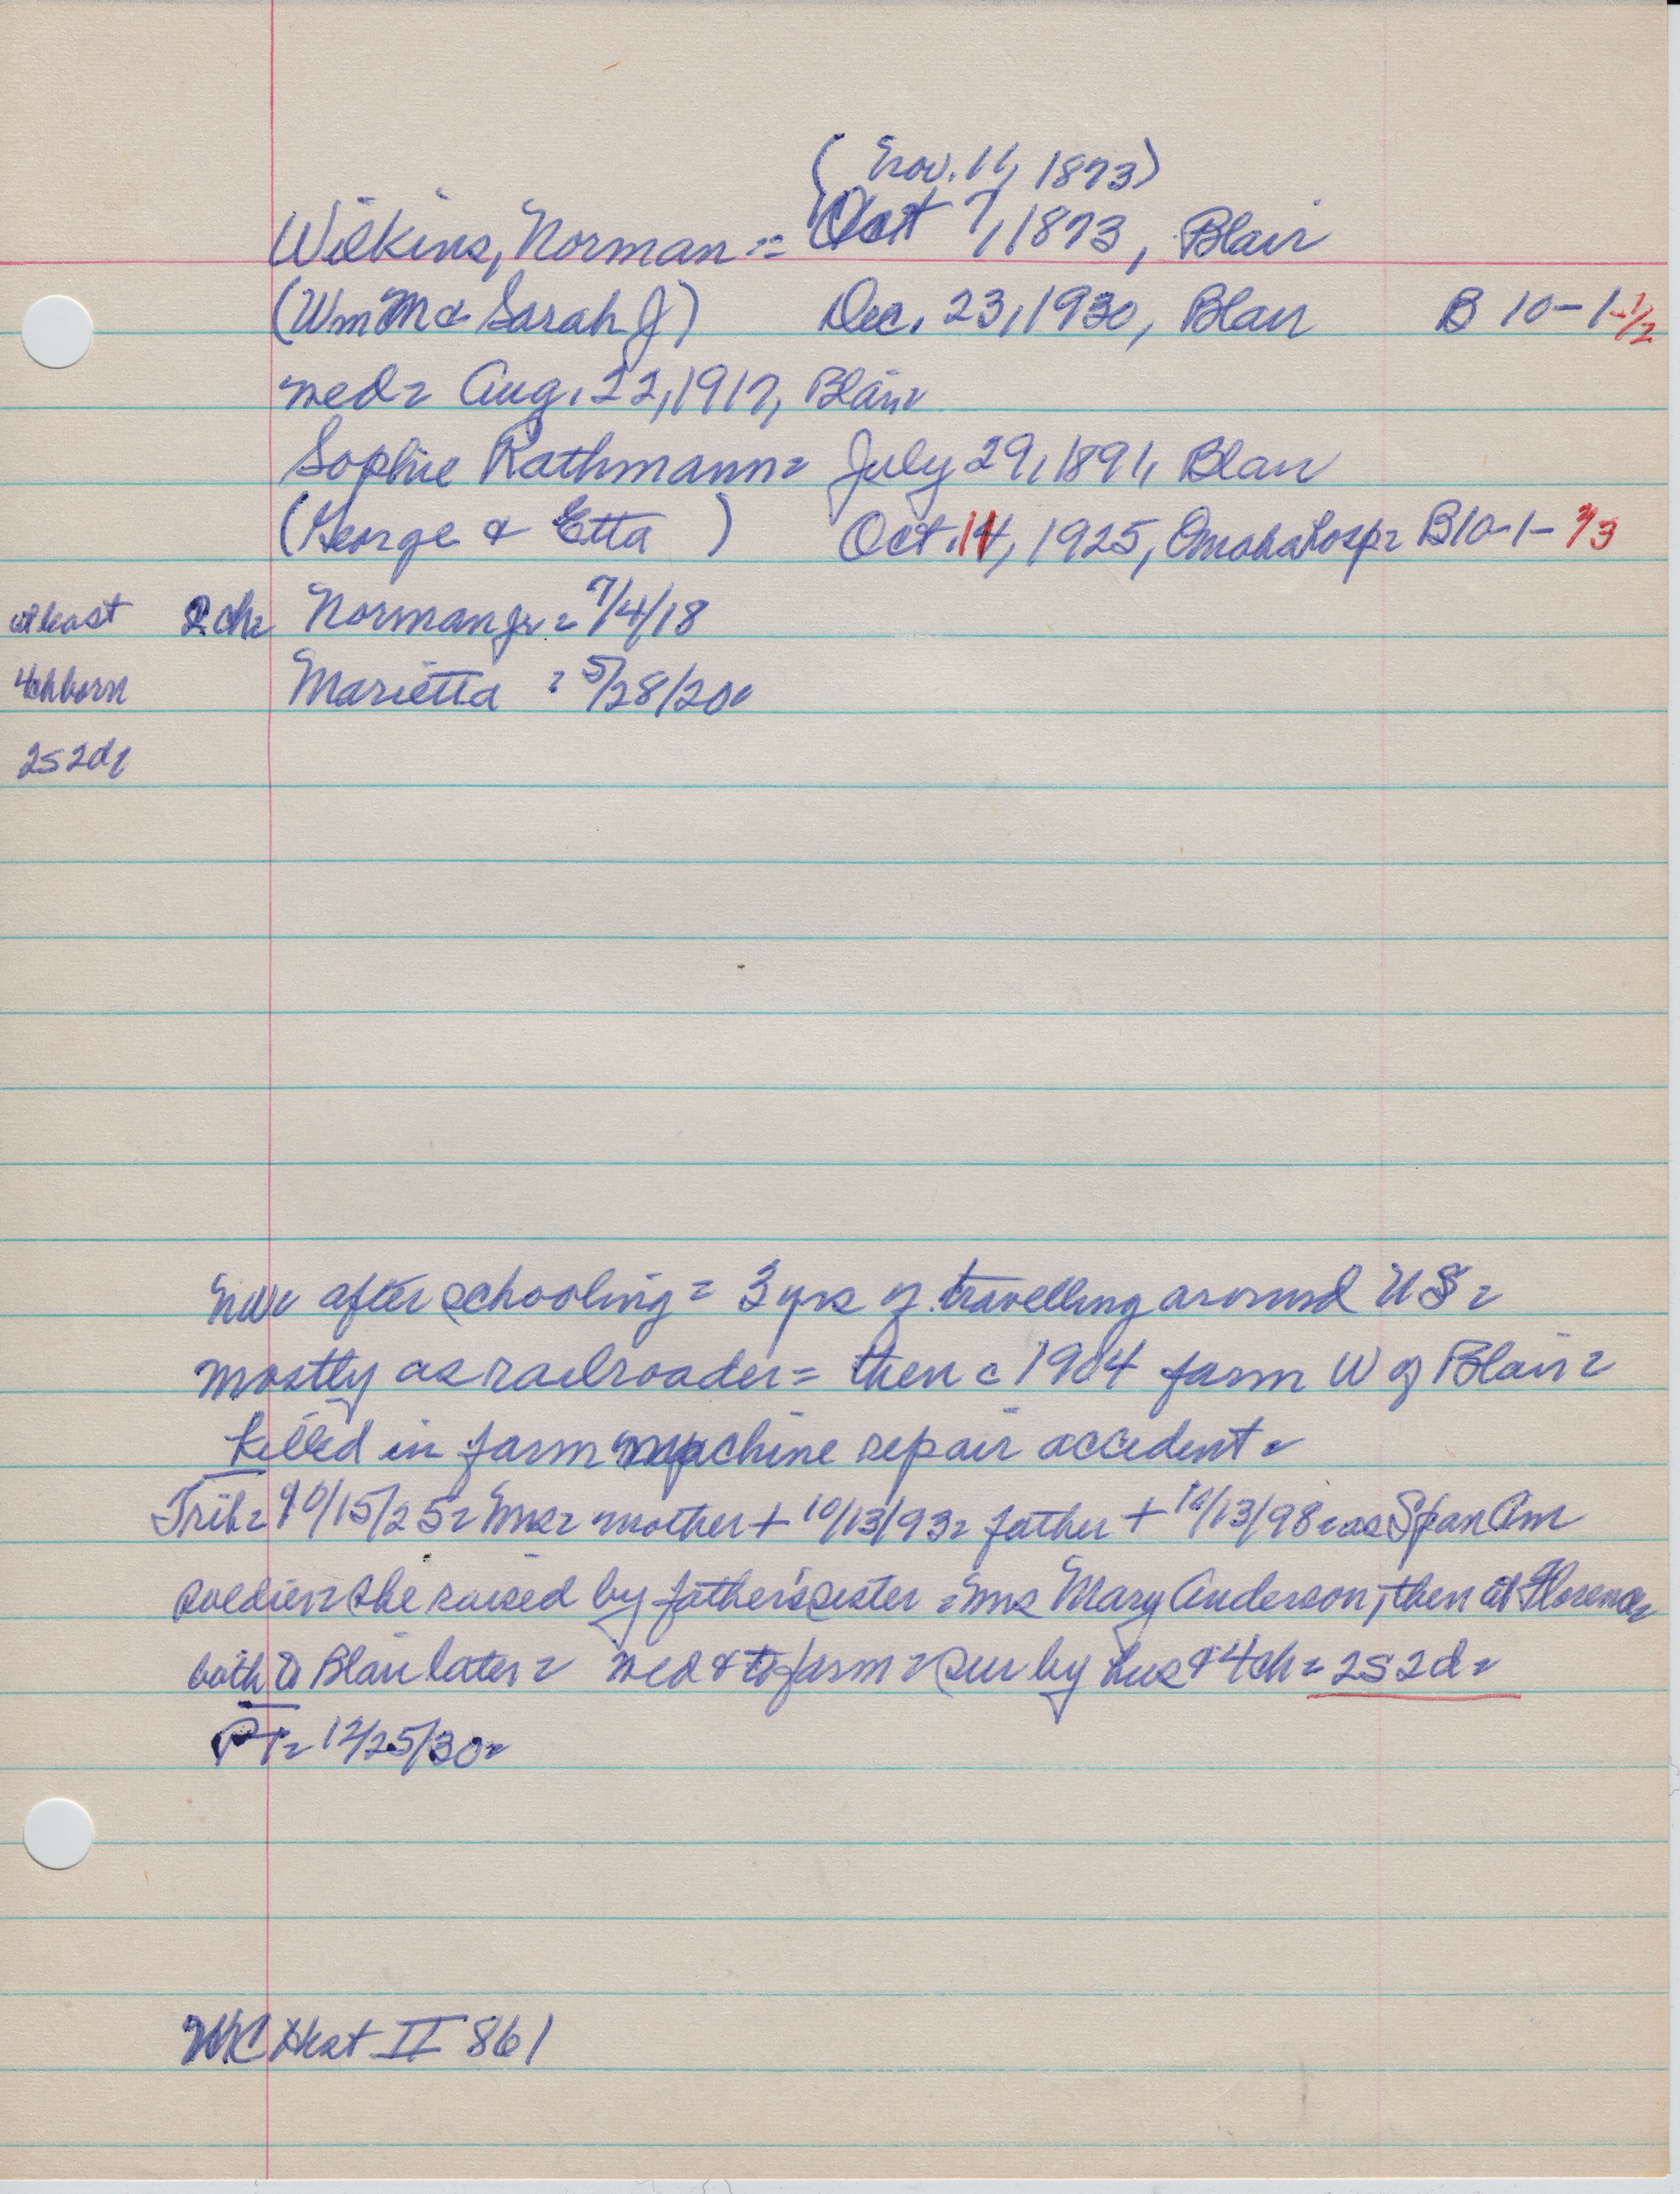 (Nov. 11, 1873)
Wilkins, Norman = Oct 7, 1873, Blair
(Wm M & Sarah J) Dec. 23, 1930, Blair B 10-1-1/2
wed = Aug. 22, 1917, Blair
Sophie Rathmann = July 29, 1891, Blair
(George & Etta ) Oct. 14, 1925, Omaha hosp = B10-1-
at least 2 ch = Norman Jr = 7/4/18
4 ch born Marietta = 5/28/20
2s 2d =
after schooling = 3 yrs of travelling around US =
mostly as railroader = then c 1904 farm W of Blair =
killed in farm machine repair accident =
Trib = 10/15/25 = Mrs = mother + 10/13/93 = father + 10/13/98 = as Span Am
soldier = she raised by father's sister = Mrs Mary Anderson, then at Florence
both to Blair later = wed & to farm = sur by hus & 4 ch = 2s 2d =
PT = 12/25/30 =
WC Hist II 861